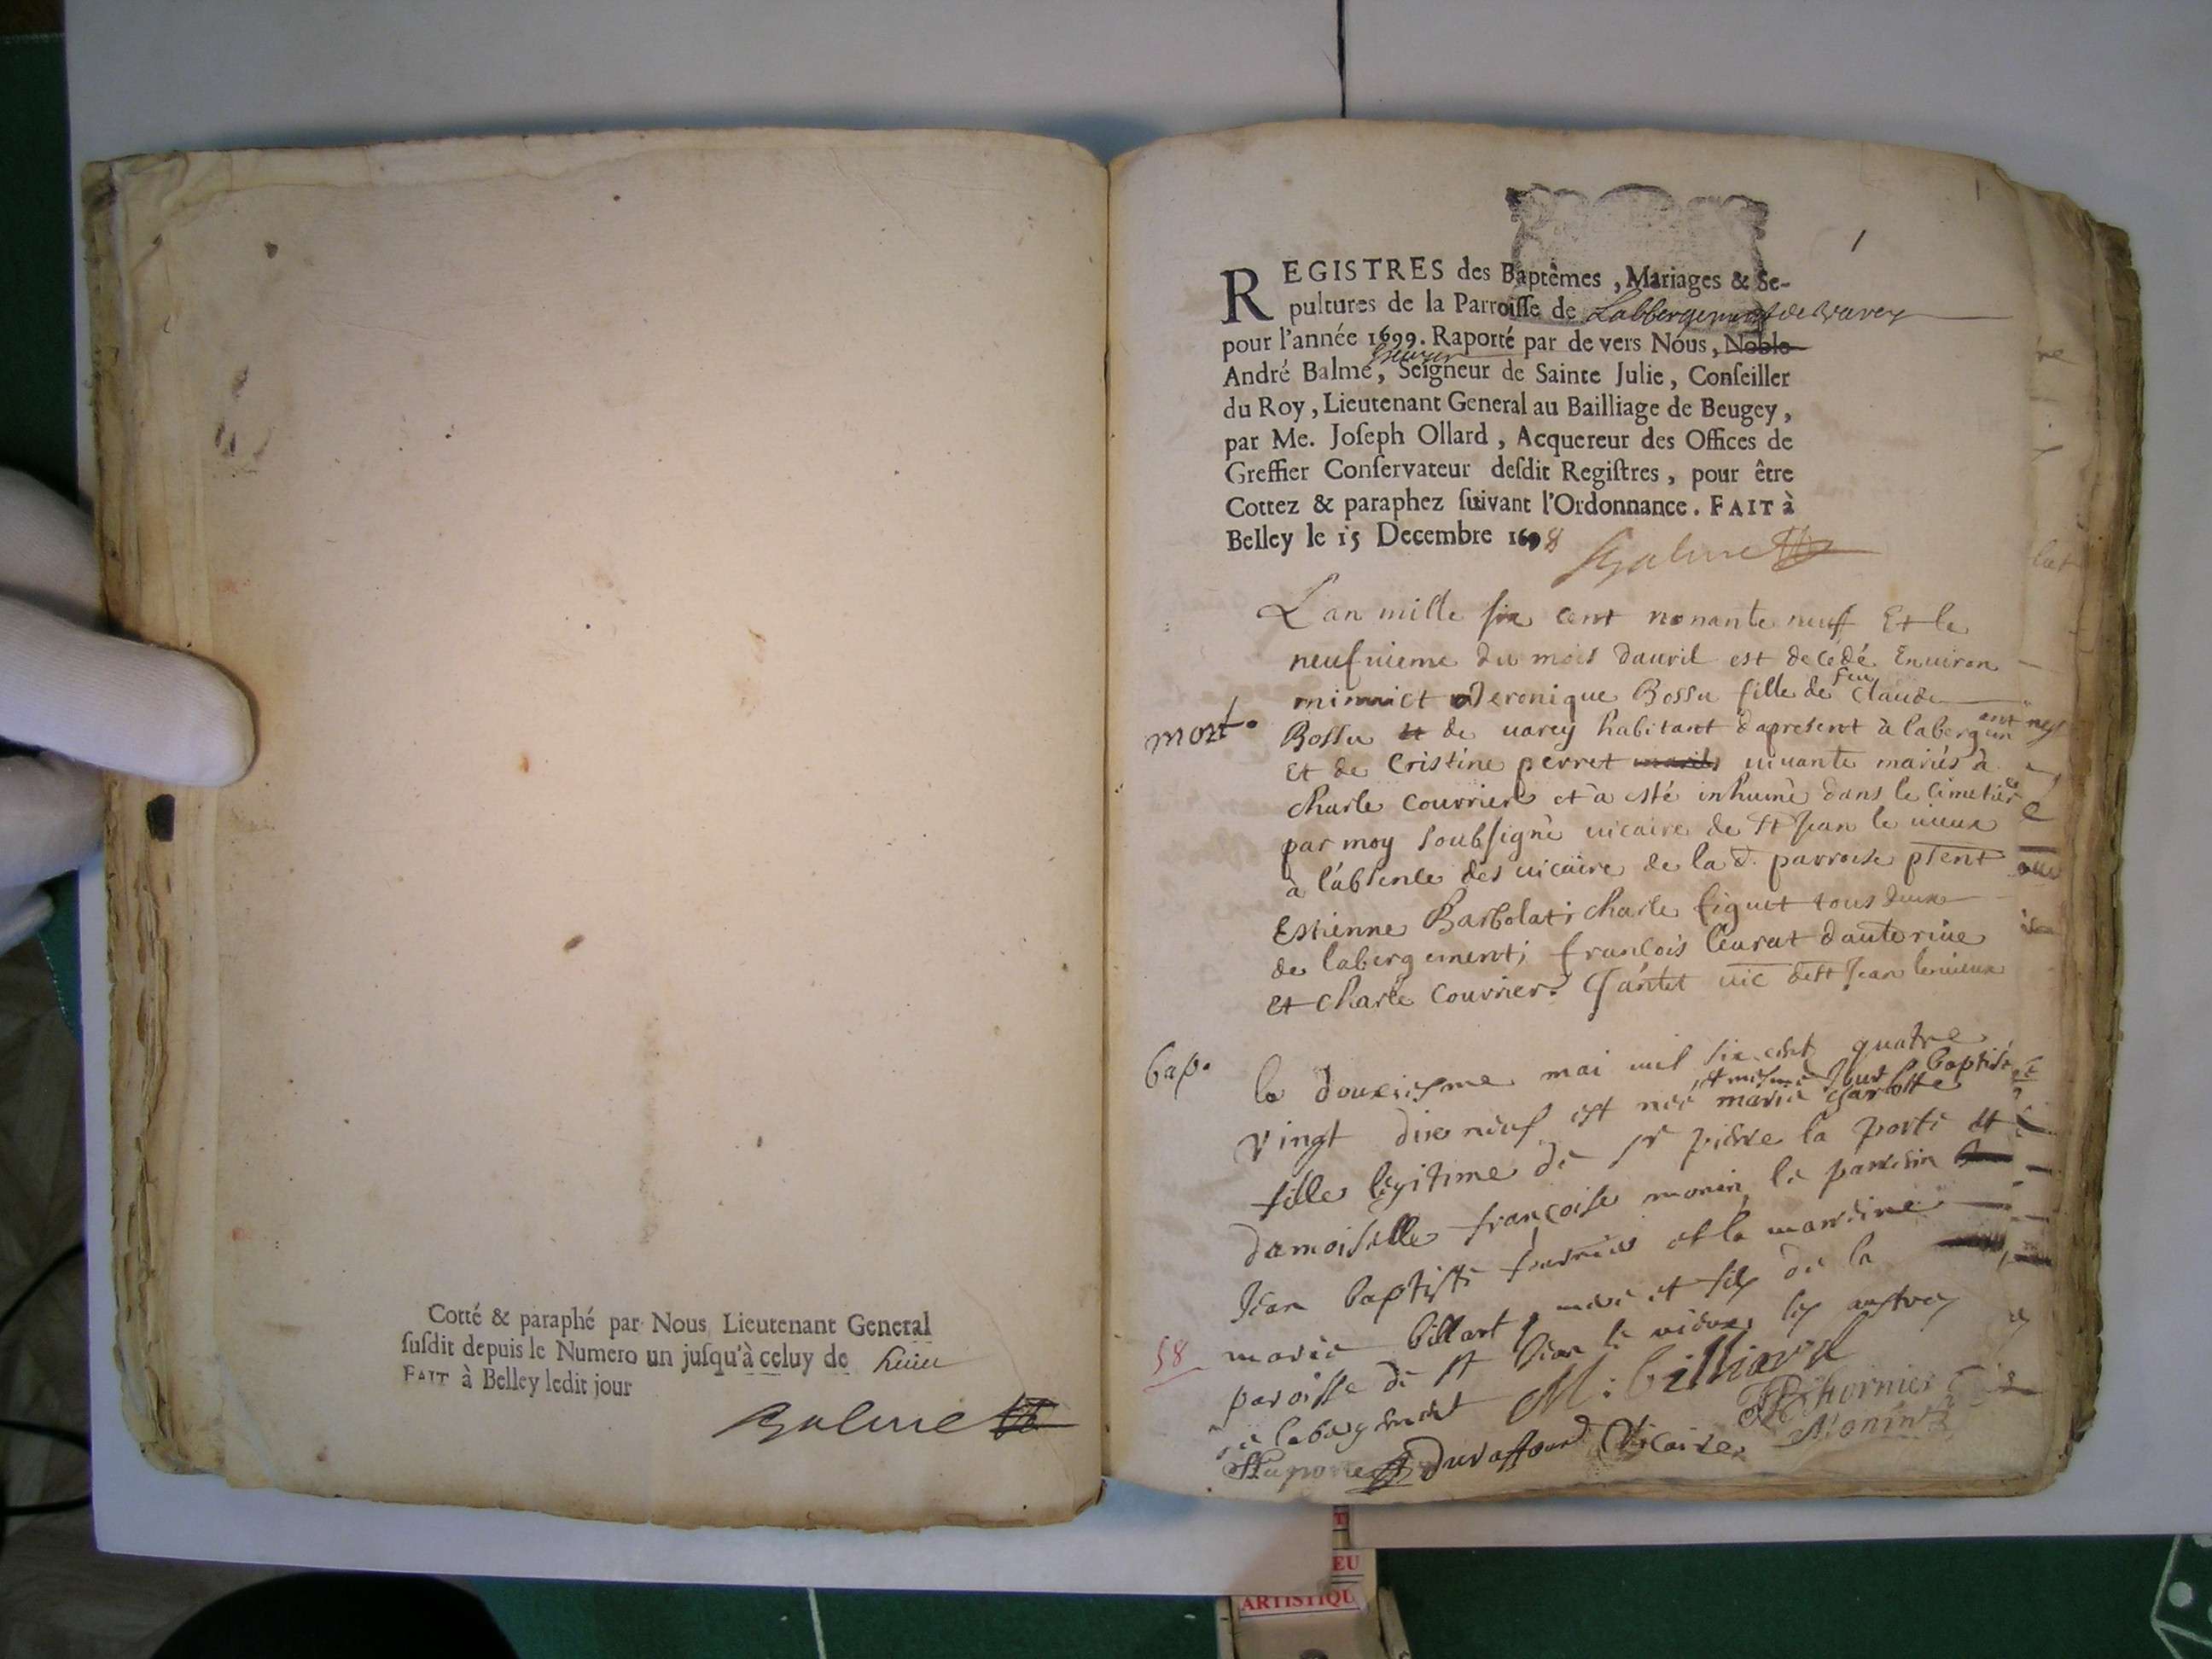 Cotté & paraphé par Nous Lieutenant General
ſuſdit depuis le Numero un juſqu'à celuy de huict
FAIT à Belley ledit jour
Balme
1
REGISTRES des Baptêmes, Mariages & Se-
pultures de la Parroiſſe de Labbergement de varey
pour l'année 1699. Raporté par de vers Nous, Noble
André Balme, Seigneur de Sainte Julie, Conſeiller
du Roy, Lieutenant General au Bailliage de Beugey,
par Me. Joſeph Ollard, Acquereur des Offices de
Greffier Conſervateur deſdit Regiſtres, pour être
Cottez & paraphez ſuivant l'Ordonnance. FAIT à
Belley le 15 Decembre 1698
Balme
L'an mille six cent nonante neuf Et le
neufuieme du mois dauril est decedé Enuiron
minuict Veronique Bossu fille de feu Claude
mort.
Bossu de uarey habitant dapresent à labergement
et de Cristine perret uiuante mariés à
charle Courrier et a esté inhumé dans le Cimetiere
par moy soubsigné uicaire de St Jean le uieux
à l'absence des uicaire de la d. parroise pſent
Estienne Barbolat; charle figuet tous deux
de labergement; françois leurat dauteriue
et charle Courrier. Jantet uic de St Jean le uieux
bap.
le douxiesme mai mil six cent quatre
vingt dix neuf est née et mesme Jour baptisé
marie charlotte
fille legitime de sr pierre la porte et
damoiselle françoise monin, le parrein
Jean baptiste fournier et la marrine
marie billart de la
58
paroisse de St Jean le vieux les austres
de labergement M: billiard
JB fornier
Laporte Duraffour Vicaire Monin
EU
ARTISTIQU